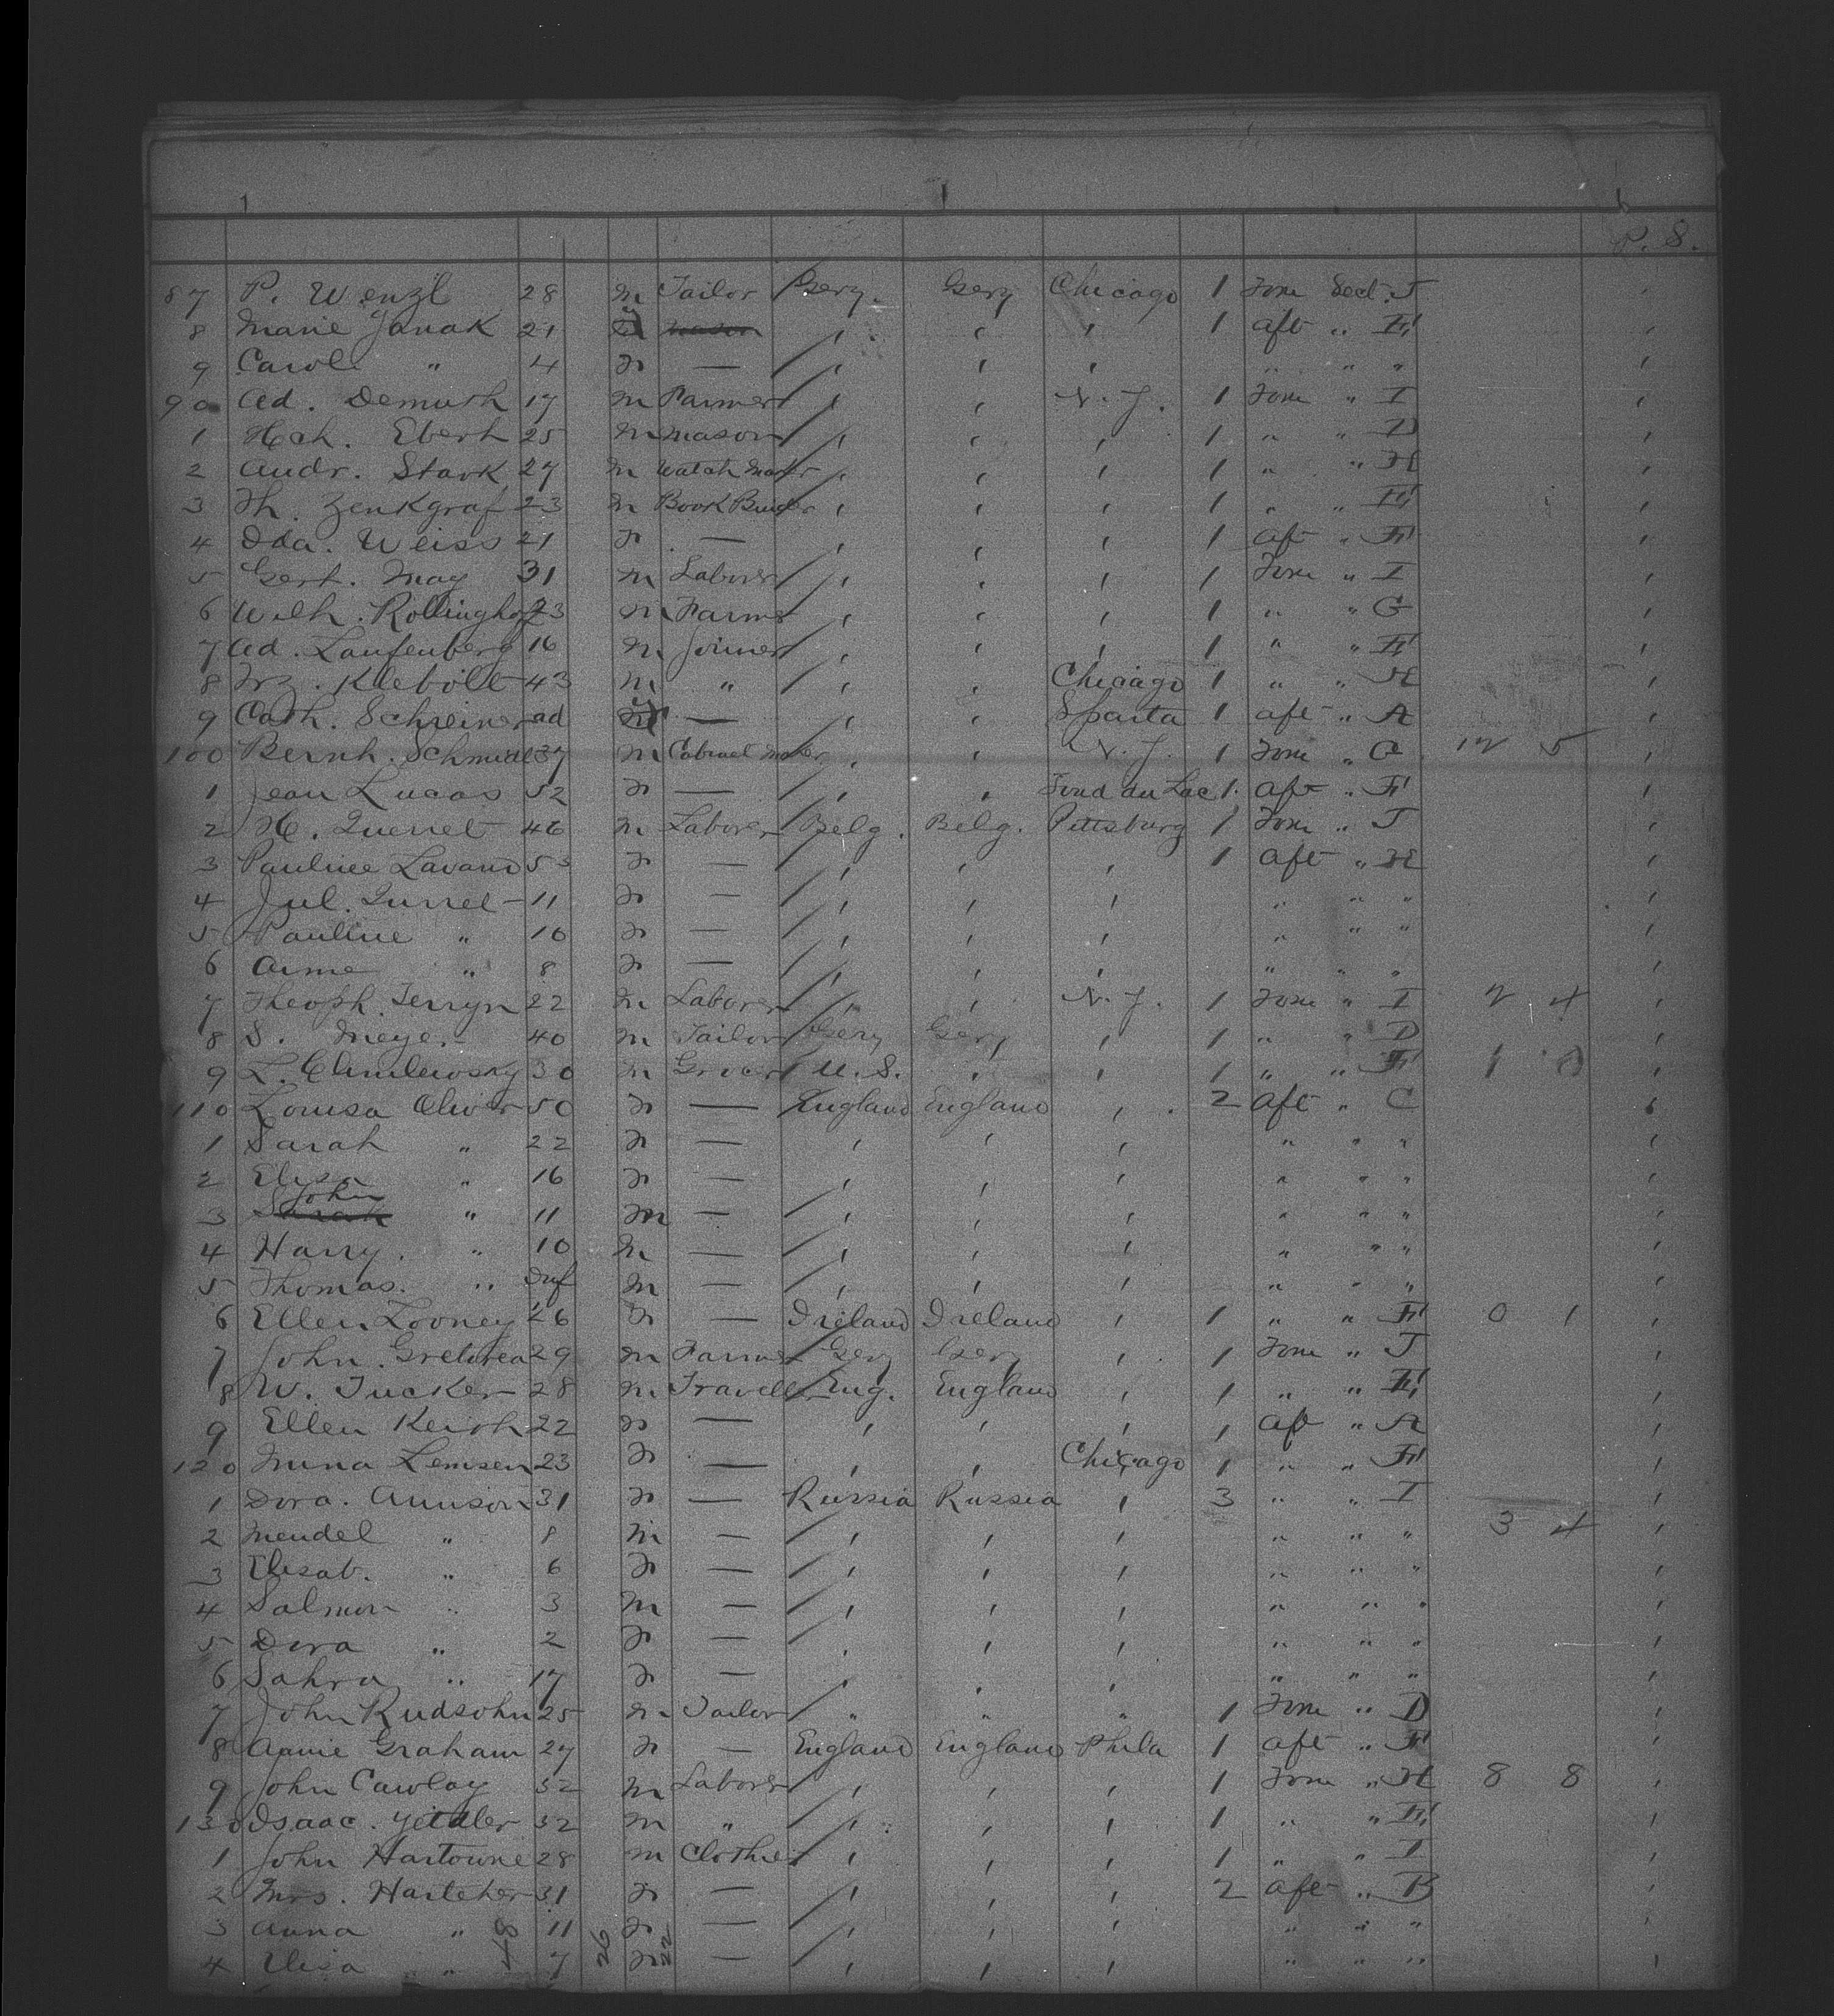 1 6
P. S.
87 P. Wenzl 28 m Tailor Gery. Gery Chicago 1 Fore Sect. J
8 Marie Janak 21 " " " 1 aft " F
9 Carol " 4 F — " " " " " "
90 Ad. Demuth 17 m Farmer " " N. Y. 1 Fore " I
1 Hch. Ebert 25 m mason " " " 1 " " D
2 Andr. Stark 27 m Watch Maker " " " 1 " " H
3 Th. Zenkgraf 23 m Book Binder " " " 1 " " F
4 Ida. Weiss 21 F — " " " 1 aft " F
5 Gert. May 31 m Laborer " " " 1 Fore " I
6 Wilh. Rollinghoff 23 m Farmer " " " 1 " " G
7 Ad. Laufenberg 16 m Joiner " " " 1 " " F
8 Frz. Klebolt 43 m " " " Chicago 1 " " H
9 Cath. Schreiner ad — " " Sparta 1 aft " A
100 Bernh. Schmidt 37 m Cabinet Maker " " N. Y. 1 Fore " G 12 5
1 Jean Lucas 52 F — " " Fond du Lac 1 Aft " F
2 H. Querret 46 m Laborer Belg. Belg. Pittsburg 1 Fore " J
3 Pauline Lavand 53 F — " " " 1 Aft " H
4 Jul. Qurret 11 F — " " " " " "
5 Pauline " 10 F — " " " " " "
6 " 8 F — " " " " " "
7 Theoph. Terryn 22 m Laborer " " N. Y. 1 Fore " I 2 4
8 S. Meyer 40 m Tailor Gery Gery " 1 " " D
9 L. 30 m Grocer U. S. " " 1 " " F 1 0
110 Louisa Oliver 50 F — England England " 2 Aft " C
1 Sarah " 22 F — " " " " " "
2 Elisa " 16 F — " " " " " "
3 John " 11 m — " " " " " "
4 Harry. " 10 m — " " " " " "
5 Thomas. " Inf m — " " " " " "
6 Ellen Looney 26 F — Ireland Ireland " 1 " " F 0 1
7 John. 29 m Farmer Gery Gery " 1 Fore " J
8 W. Tucker 28 m Traveller Eng. England " 1 " " F
9 Ellen Keish 22 F — " " " 1 aft " A
120 Lemsen 23 F — " " Chicago 1 " " F
1 Dora. Aunison 31 F — Russia Russia " 3 " " I
2 Mendel " 8 m — " " " " " " 3 4
3 Elisab. " 6 F — " " " " " "
4 Salmon " 3 m — " " " " " "
5 Dora " 2 F — " " " " " "
6 Sahra " 17 F — " " " " " "
7 John Rudsohn 25 m Tailor " " " 1 Fore " D
8 Annie Graham 27 F — England England Phila 1 aft " F
9 John Cawlay 32 m Laborer " " " 1 Fore " H 8 8
130 Isaac. 32 m " " " " 1 " " F
1 John Hartowne 28 m Clothier " " " 1 " " I
2 Mrs. Hartcher 31 F — " " " 2 aft " B
3 Anna " 11 F — " " " " " "
4 Elisa " 7 F — " " " " " "
48 26 22